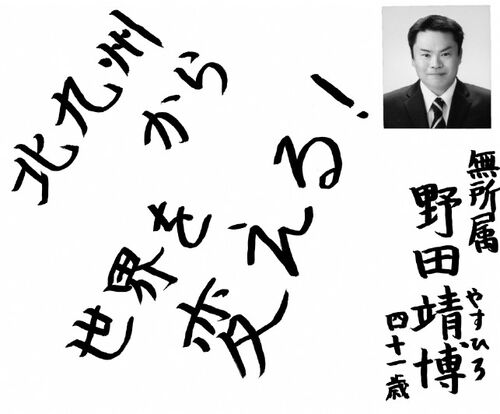 北九州
から
世界を
変える!
無所属
野田靖博
やすひろ
四十一歳